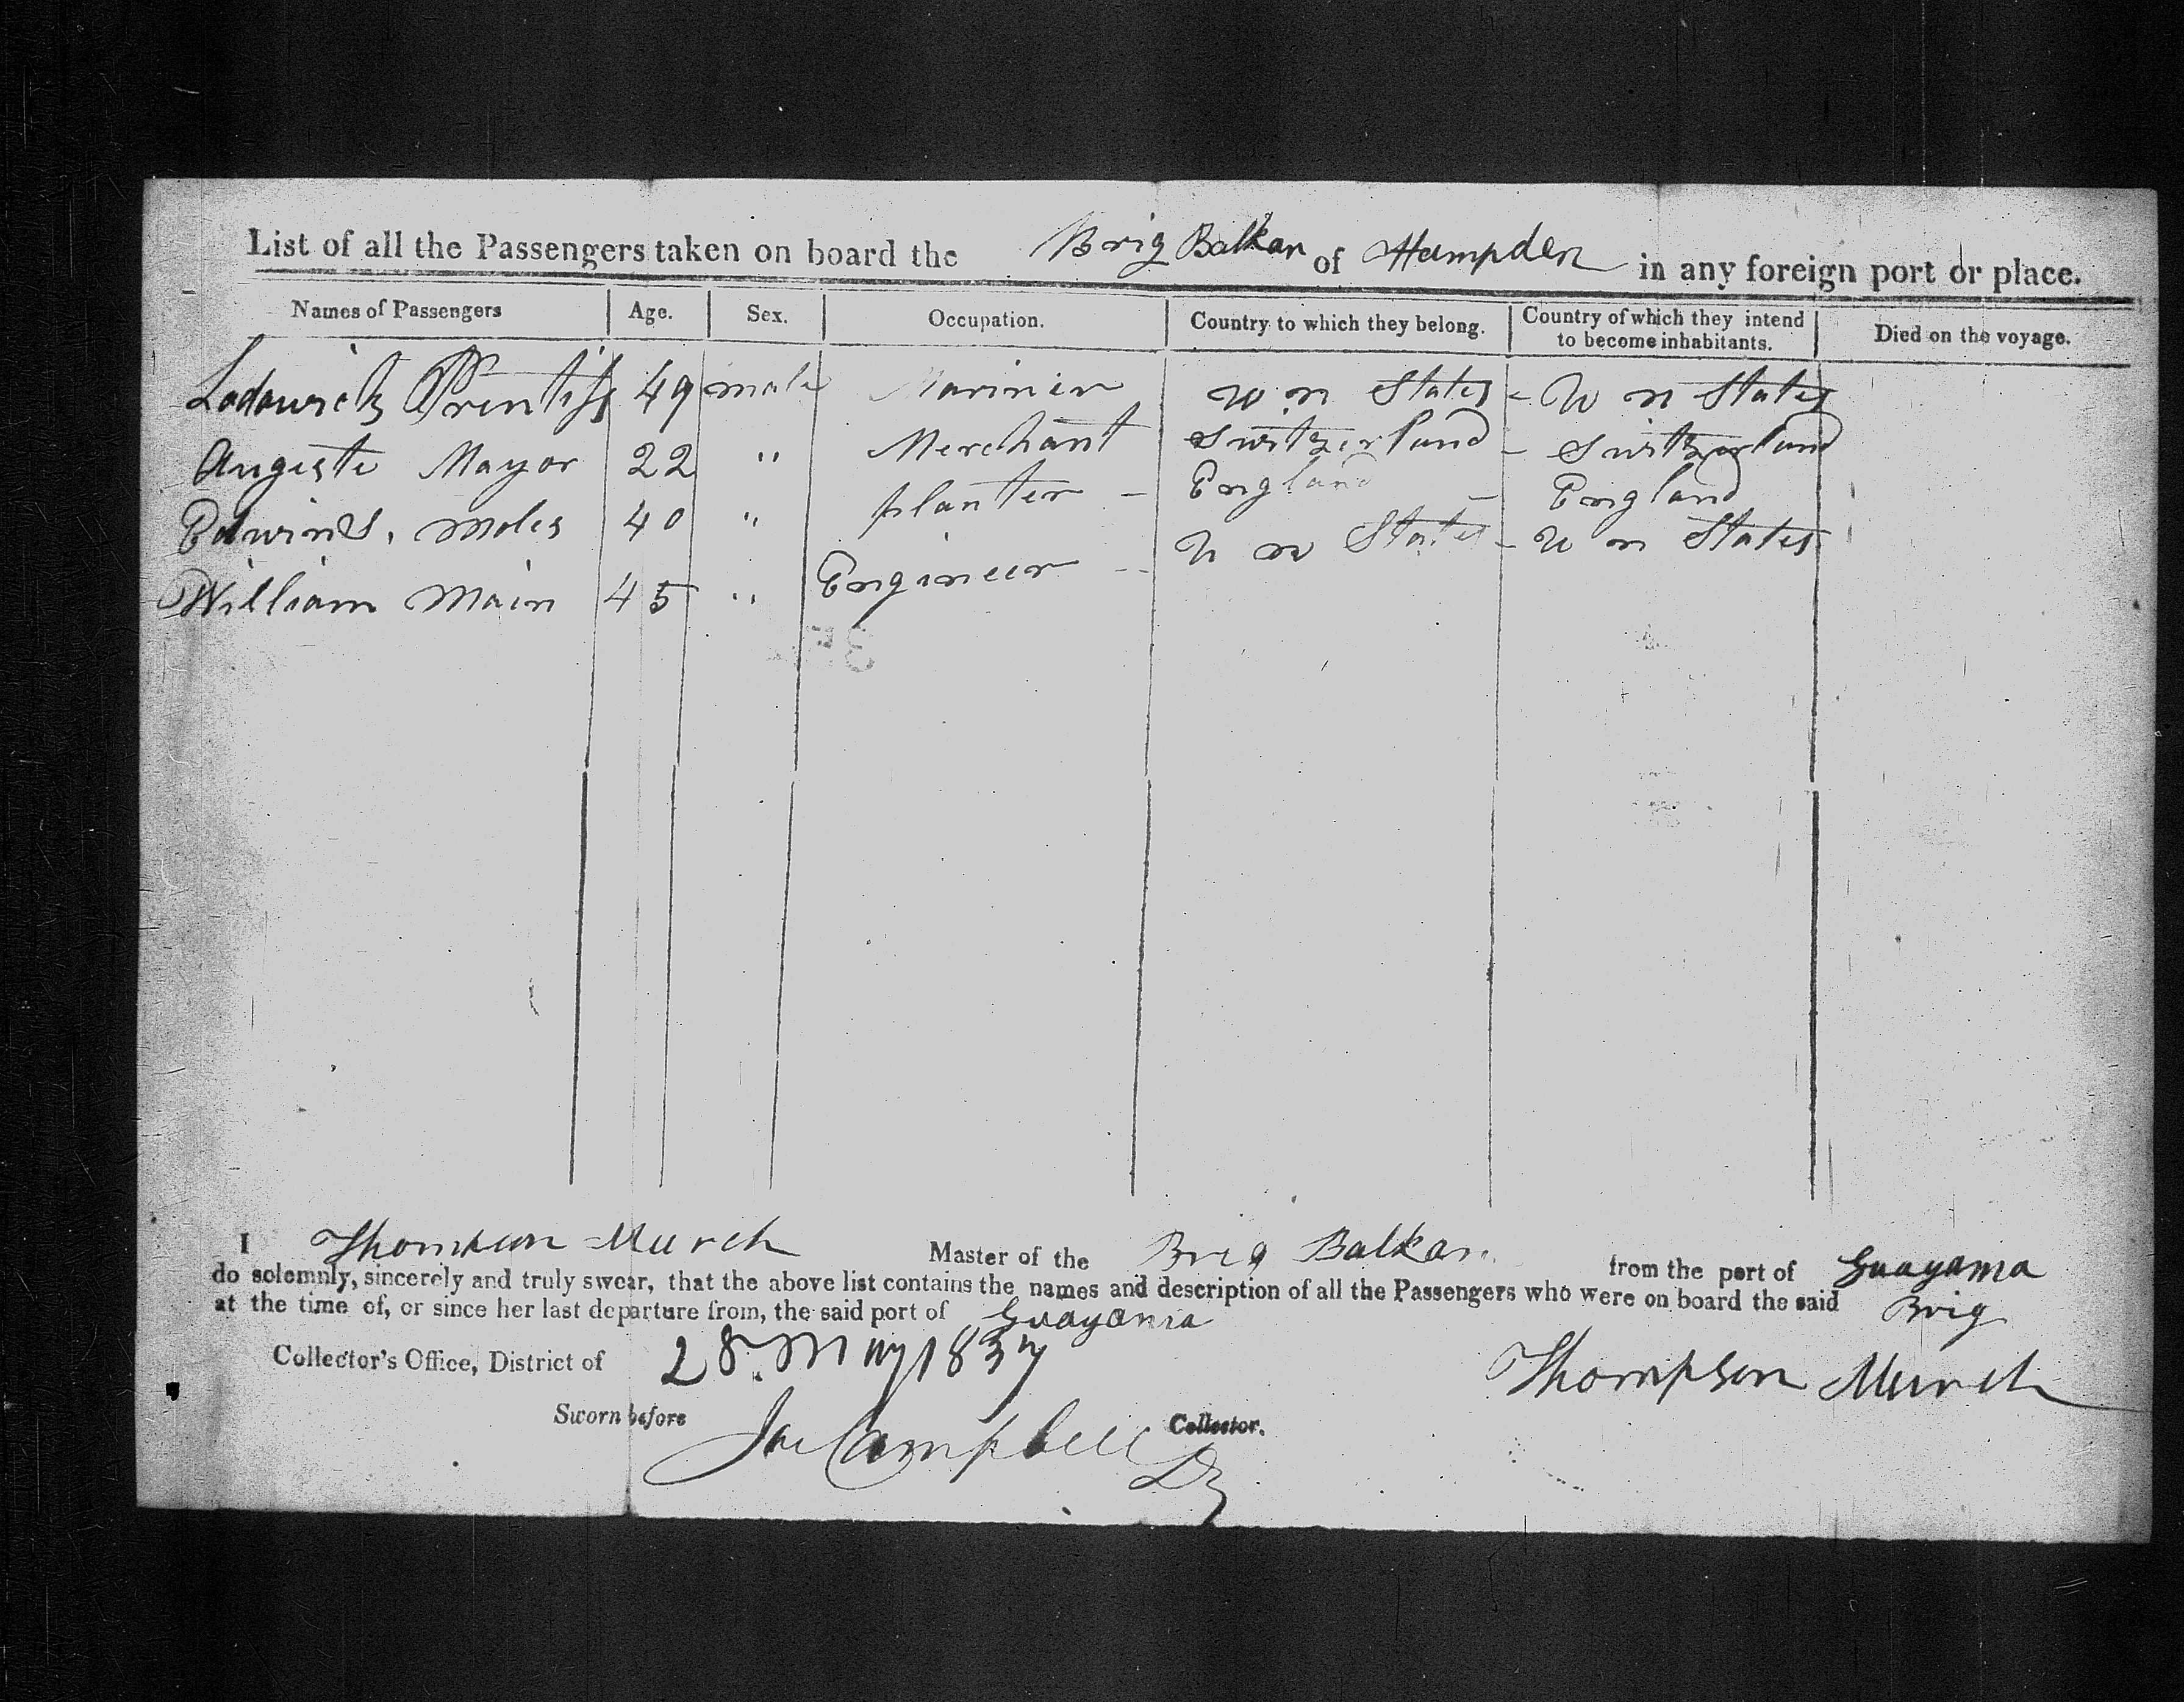 List of all the Passengers taken on board the Brig Balkan of Hampden in any foreign port or place.
Names of Passengers Age. Sex. Occupation. Country to which they belong. Country of which they intend to become inhabitants. Died on the voyage.
Lodowick Prentiss 49 male Mariner U n States - U n States
Auguste Mayor 22 " Merchant Switzerland - Switzerland
Edwin S. Moles 40 " planter - England - England
William Main 45 " Engineer - U n States - U n States
I Thompson Murch Master of the Brig Balkan from the port of Guayama
do solemnly, sincerely and truly swear, that the above list contains the names and description of all the Passengers who were on board the said Brig
at the time of, or since her last departure from, the said port of Guayama
Collector's Office, District of 28. May 1837
Thompson Murch
Sworn before Collector.
Campbell